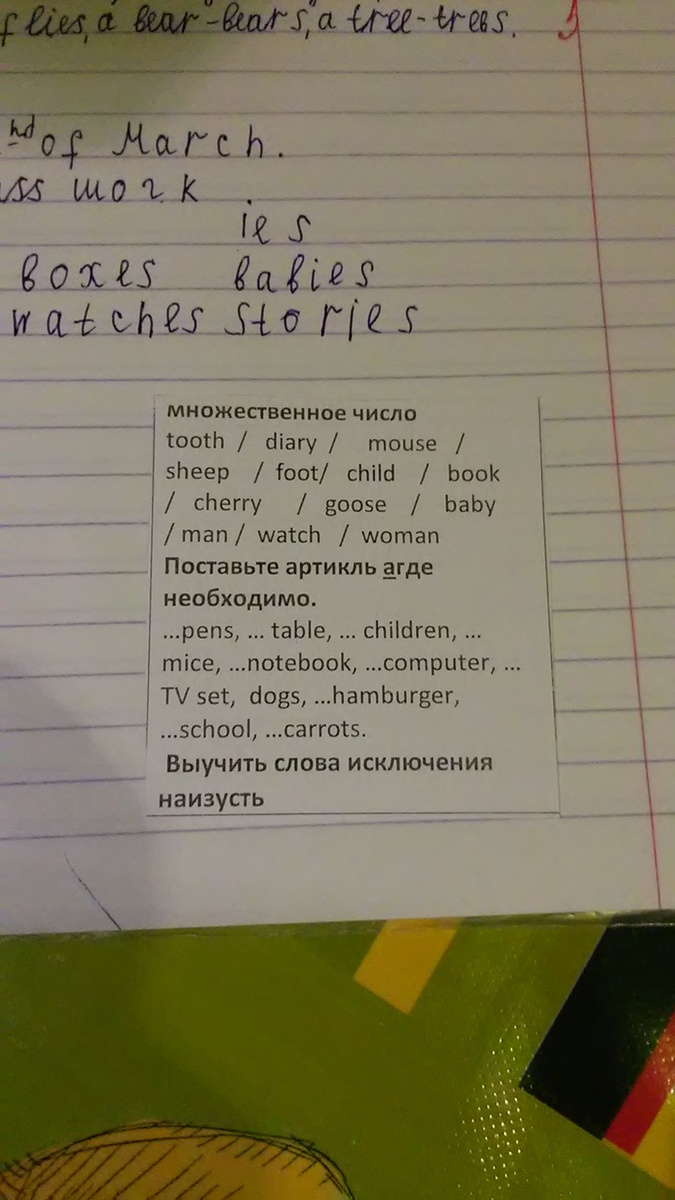 flies, a bear-bears, a tree-trees.
nd of March.
ss work
ies
boxes babies
watches stories
множественное число
tooth / diary / mouse /
sheep / foot/ child / book
/ cherry / goose / baby
/ man / watch / woman
Поставьте артикль aгде
необходимо.
...pens, ... table, ... children, ...
mice, ...notebook, ...computer, ...
TV set, dogs, ...hamburger,
...school, ...carrots.
Выучить слова исключения
наизусть